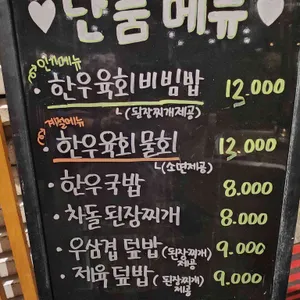 ♥단품 메뉴♥
인기메뉴
· 한우육회비빔밥 13.000
ㄴ(된장찌개제공)
계절메뉴
· 한우육회 물회 13.000
ㄴ(소면제공)
· 한우국밥 8.000
· 차돌 된장찌개 8.000
· 우삼겹 덮밥 (된장찌개 제공) 9.000
· 제육 덮밥 (된장찌개 제공) 9.000